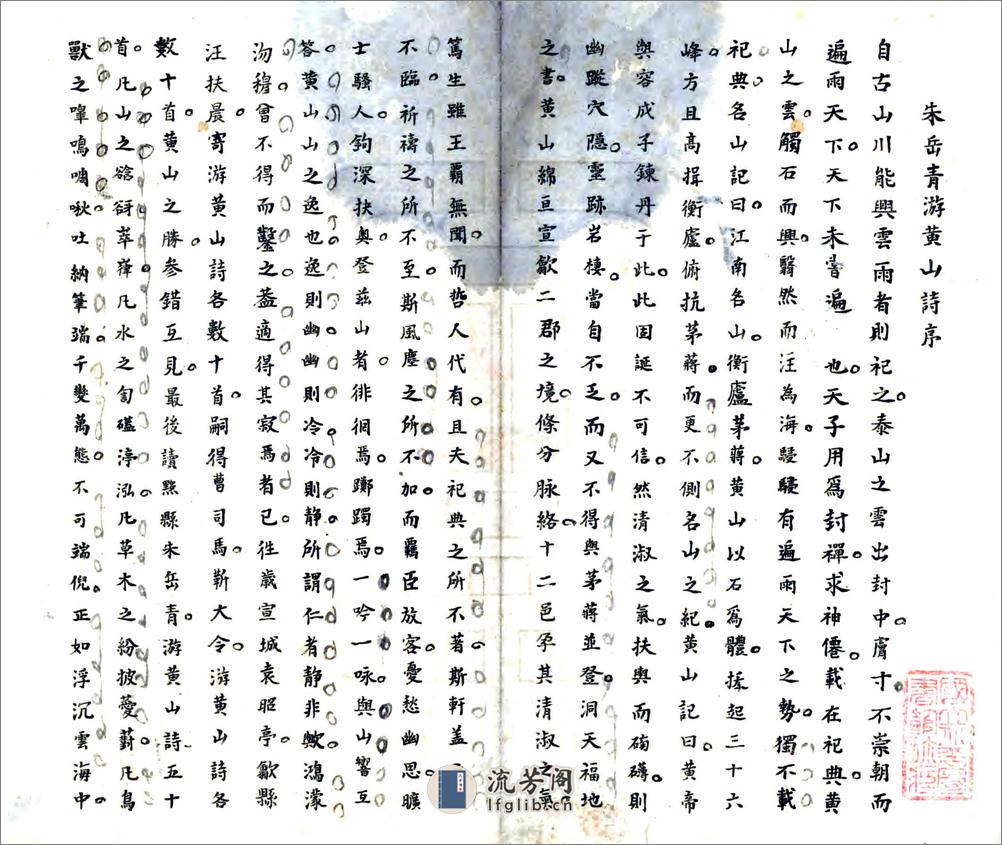 朱岳青游黄山詩序
自古山川能興雲雨者則祀之泰山之雲出封中膚寸不崇朝而
遍雨天下天下未嘗遍也天子用爲封禪求神僊載在祀典黄
山之雲觸石而興翳然而汪為海駸駸有遍雨天下之勢獨不載
祀典名山記曰江南名山衡廬茅蔣黄山以石爲體揉起三十六
峰方且高揖衡廬俯抗茅蔣而更不側名山之紀黄山記曰黄帝
與容成子鍊丹于此此固誕不可信然清淑之氣扶輿而磅礴則
幽蹤穴隱靈跡岩棲當自不乏而又不得與茅蔣並登洞天福地
之書黄山綿亘宣歙二郡之境條分脉絡十二邑孕其清淑之氣
篤生雖王覇無聞而哲人代有且夫祀典之所不著斯軒盖之
不臨祈禱之所不至斯風塵之所不加而羈臣放客憂愁幽思曠
士騷人鈎深抉奥登茲山者徘徊焉躑躅焉一吟一咏與山響互
答黄山山之逸也逸則幽幽則冷冷則静所謂仁者静非歟鴻濛
沕穆曾不得而鑿之葢適得其寂焉者已徃歲宣城袁昭亭歙縣
汪扶晨寄游黄山詩各數十首嗣得曹司馬靳大令游黄山詩各
數十首黄山之勝参錯互見最後讀黟縣朱岳青游黄山詩五十
首凡山之谽谺崒嵂凡水之匉礚渟泓凡草木之紛披薆薱凡鳥
獸之嘷鳴嘯啾吐納筆端千變萬態不可端倪正如浮沉雲海中
流芳阁
lfglib.cn